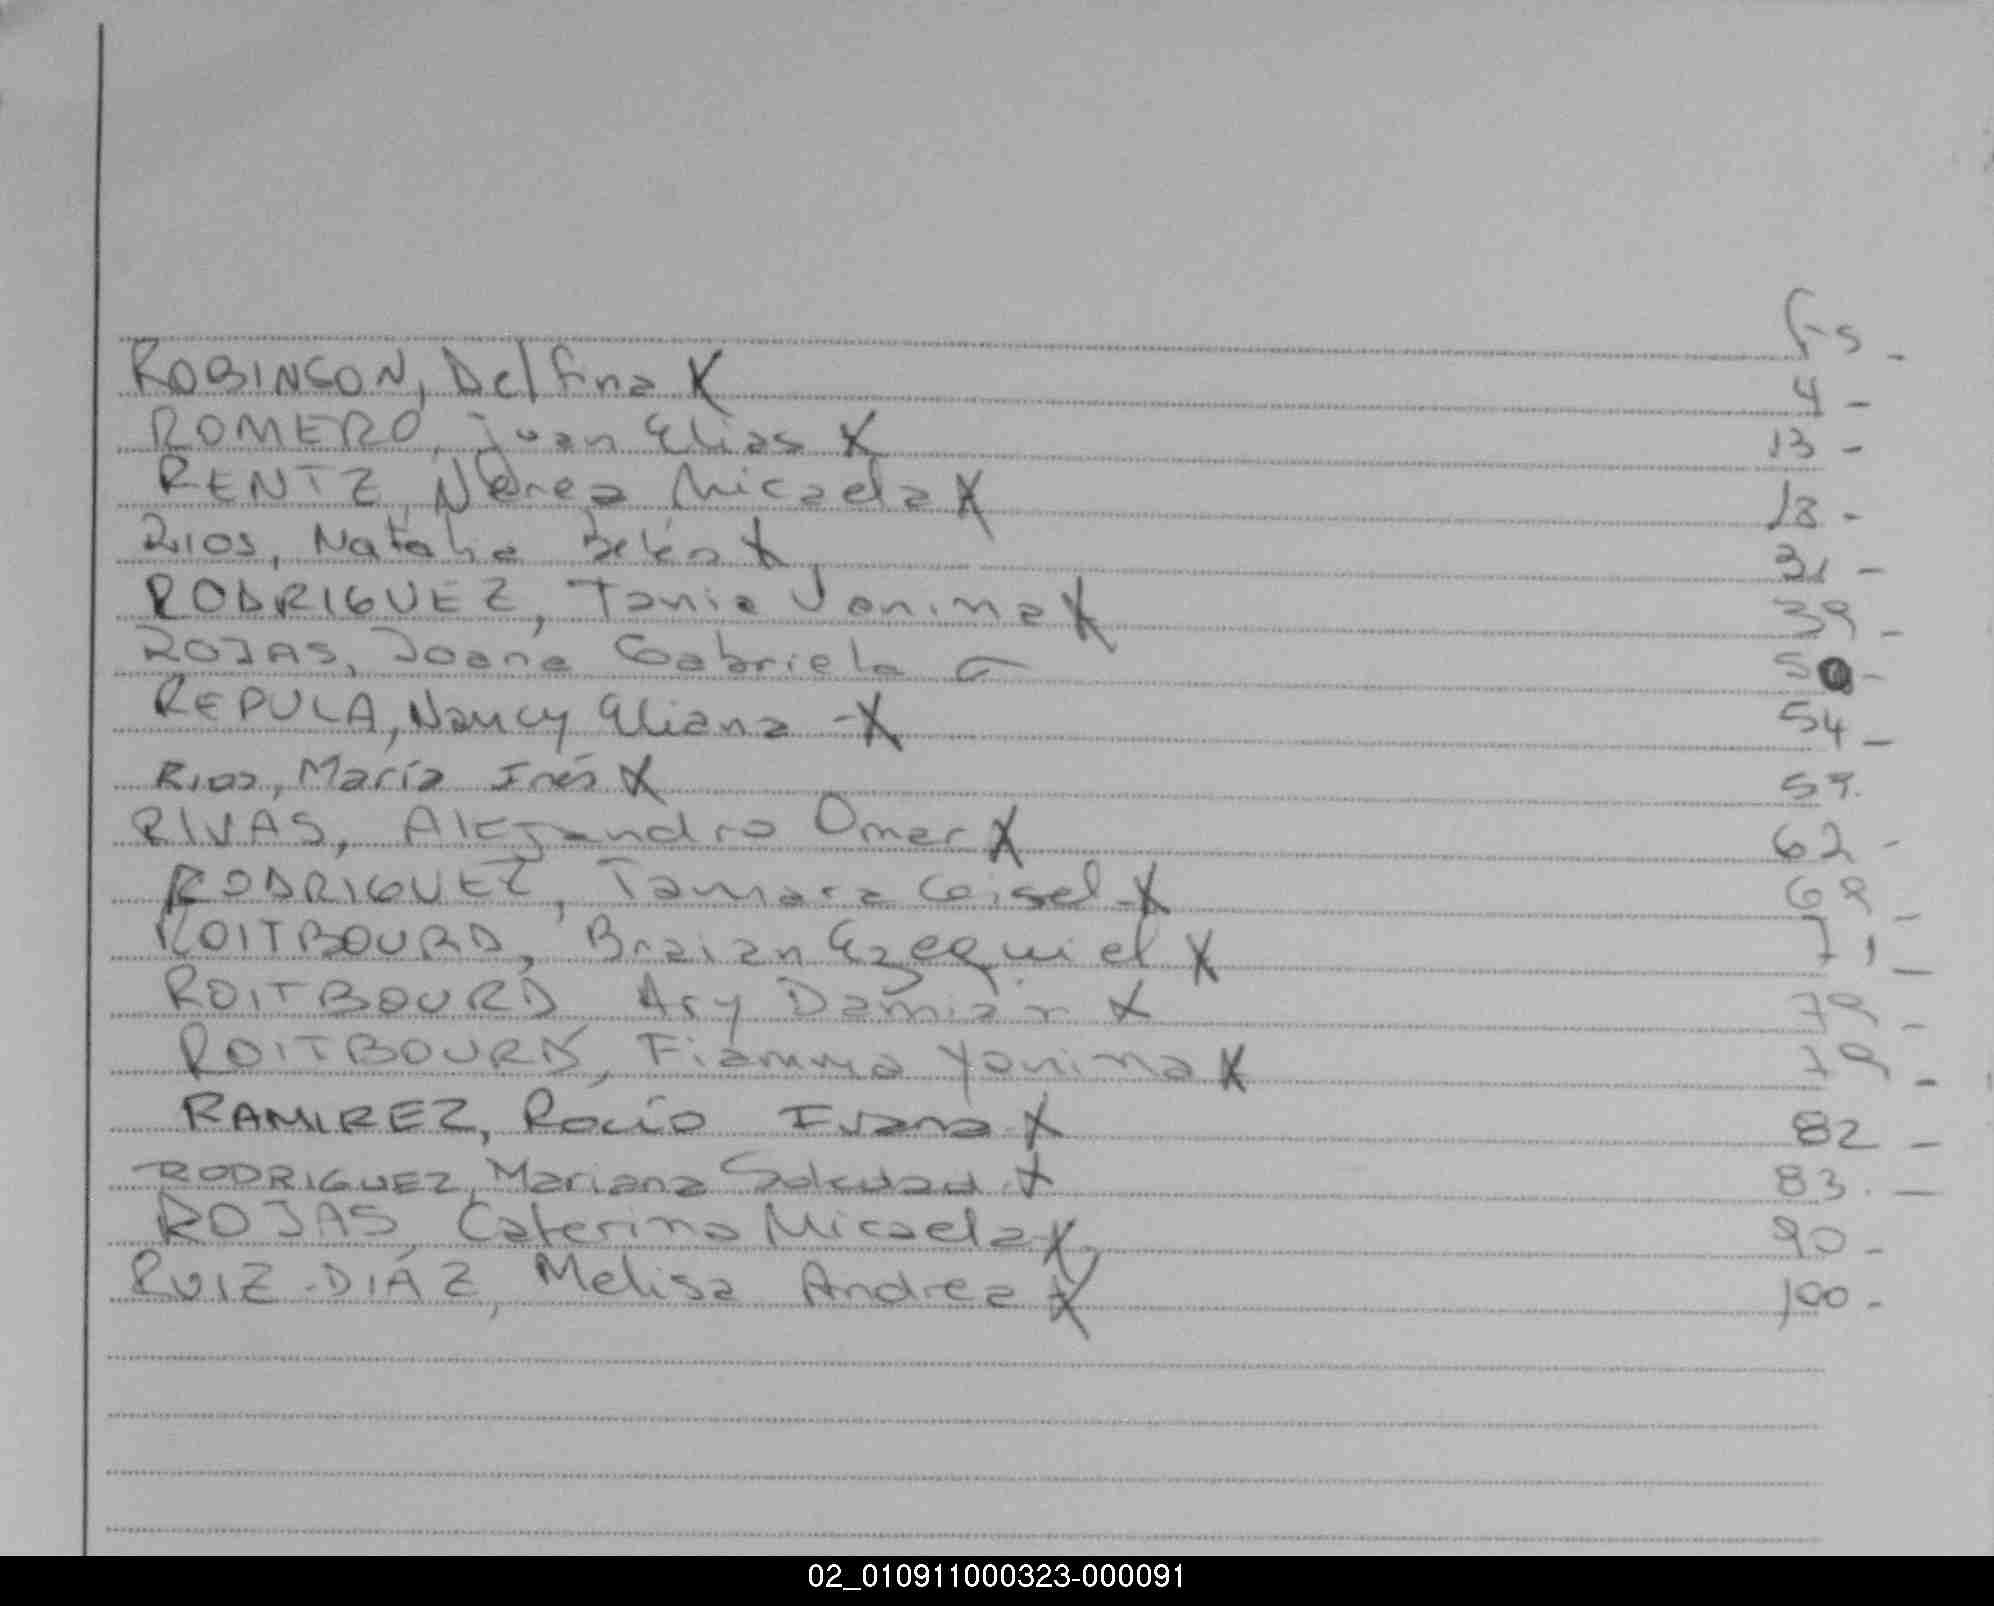 Fs -
ROBINSON, Delfina X 4 -
ROMERO, Juan Elias X 13 -
RENTZ, Nerea Micaela X 18 -
RIOS, Natalia Belén X 31 -
RODRIGUEZ, Tania Yanina X 39 -
ROJAS, Joana Gabriela 50 -
REPULA, Nancy Eliana - X 54 -
RIOS, María Inés X 57.
RIVAS, Alejandro Omar X 62 -
RODRIGUEZ, Tamara Geisel X 69 -
ROITBOURD, Braian Ezequiel X 71 -
ROITBOURD Ary Damián X 79 -
ROITBOURD, Fiamma Yanina X 79 -
RAMIREZ, Rocío Ivana X 82 -
RODRIGUEZ, Mariana Soledad X 83. -
ROJAS, Caterina Micaela X 90 -
RUIZ-DIÁZ, Melisa Andrea X 100 -
02_010911000323-000091